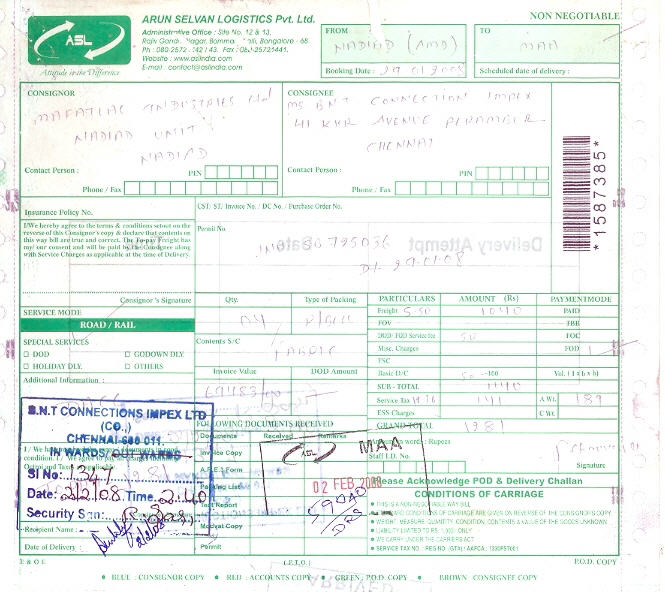 ARUN SELVAN LOGISTICS Pvt. Ltd.
NON NEGOTIABLE
ASL
Attitude is the Difference
Administrative Office : Site No. 12 & 13,
Rajiv Gandhi Nagar, Bangalore - 68
Website : www.aslindia.com
E-mail : contact@aslindia.com
FROM
NADIAD (AMD)
Booking Date : 29 01 2008
TO
MAA
Scheduled date of delivery :
CONSIGNOR
MAFATLAL INDUSTRIES Ltd
NADIAD UNIT
NADIAD
Contact Person :
PIN
Phone / Fax
CONSIGNEE
MS BNT CONNECTION IMPEX
41 KKR AVENUE PERAMBUR
CHENNAI
Contact Person :
PIN
Phone / Fax
*1587385*
Insurance Policy No.
CST. ST. Invoice No. / DC No. / Purchase Order No.
I/We hereby agree to the terms & conditions setout on the
reverse of this Consignor's copy & declare that contents on
this way bill are true and correct. The To-pay Freight has
my/our consent and will be paid by the Consignee along
with Service Charges as applicable at the time of Delivery.
Permit No.
INV 50 795036
Dt. 29.01.08
Consignor's Signature
SERVICE MODE
ROAD / RAIL
SPECIAL SERVICES
DOD
GODOWN DLY.
HOLIDAY DLY.
OTHERS
Additional Information :
Qty.
Type of Packing
04
Contents S/C
FABRIC
Invoice Value
DOD Amount
PARTICULARS
AMOUNT (Rs)
PAYMENT MODE
Freight 5.50
1040
PAID
FOV
FBB
DOD / FOD Service fee
50
FOC
Misc. Charges
FOD
FSC
Basic D/C
50 100
Vol. (l x b x h)
SUB - TOTAL
Service Tax
141
A Wt.
189
ESS Charges
C Wt.
GRAND TOTAL
1281
Rupees
Staff I.D. No.
Signature
FOLLOWING DOCUMENTS RECEIVED
Documents
Received
Remarks
Invoice Copy
A.R.E.1 Form
Packing List
Test Report
Modvat Copy
Permit
B.N.T CONNECTIONS IMPEX LTD
(CO.,)
CHENNAI-600 011.
IN WARDS/OUT WARDS
Sl No: 1347
Date: 2/2/08 Time. 2.40
Security Sgn:
Recipient Name :
Date of Delivery :
ASL
MAA
02 FEB 2008
59040
DRS
Please Acknowledge POD & Delivery Challan
CONDITIONS OF CARRIAGE
THIS IS A NON-NEGOTIABLE WAY BILL
AND CONDITIONS OF CARRIAGE ARE GIVEN ON REVERSE OF THE CONSIGNOR'S COPY
WEIGHT MEASURE QUANTITY, CONDITION, CONTENTS & VALUE OF THE GOODS UNKNOWN
WE CARRY UNDER THE CARRIERS ACT
E & O E
(P.T.O.)
P.O.D. COPY
• BLUE : CONSIGNOR COPY • RED : ACCOUNTS COPY • GREEN : P.O.D. COPY • BROWN : CONSIGNEE COPY